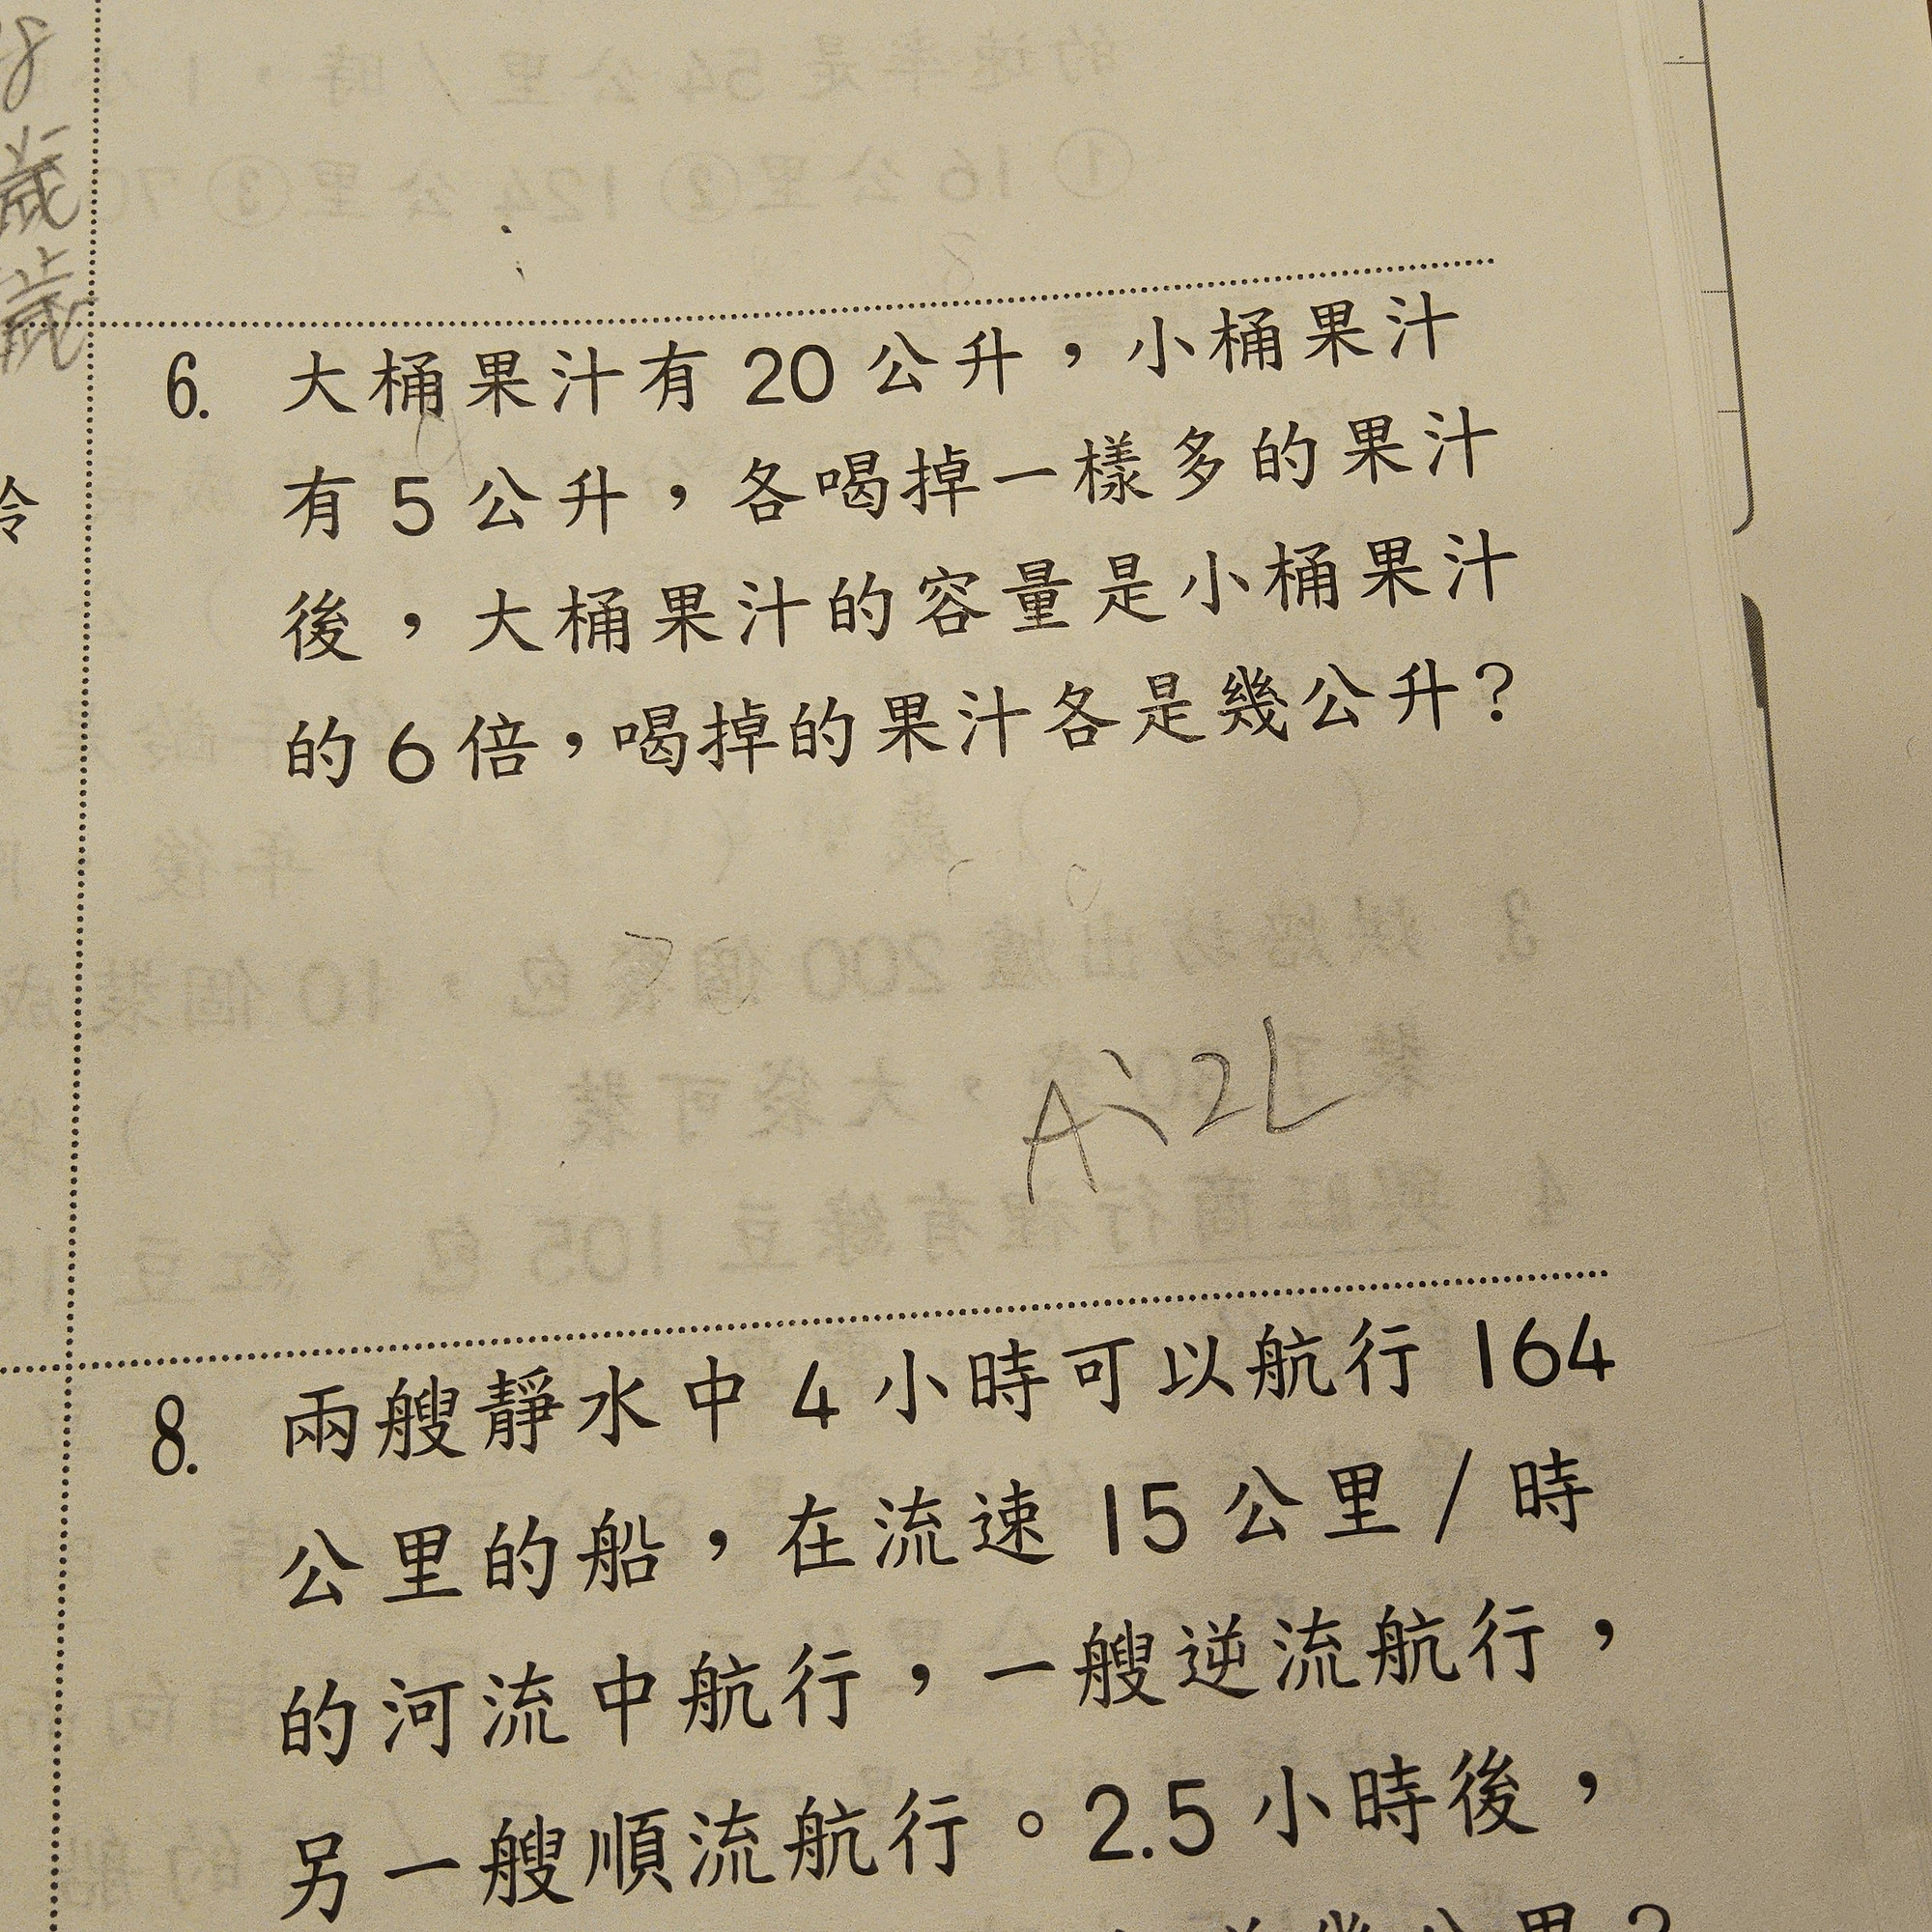 6. 大桶果汁有 20 公升，小桶果汁
有 5 公升，各喝掉一樣多的果汁
後，大桶果汁的容量是小桶果汁
的 6 倍，喝掉的果汁各是幾公升？
A：2L
8. 兩艘靜水中 4 小時可以航行 164
公里的船，在流速 15 公里 / 時
的河流中航行，一艘逆流航行，
另一艘順流航行。2.5 小時後，